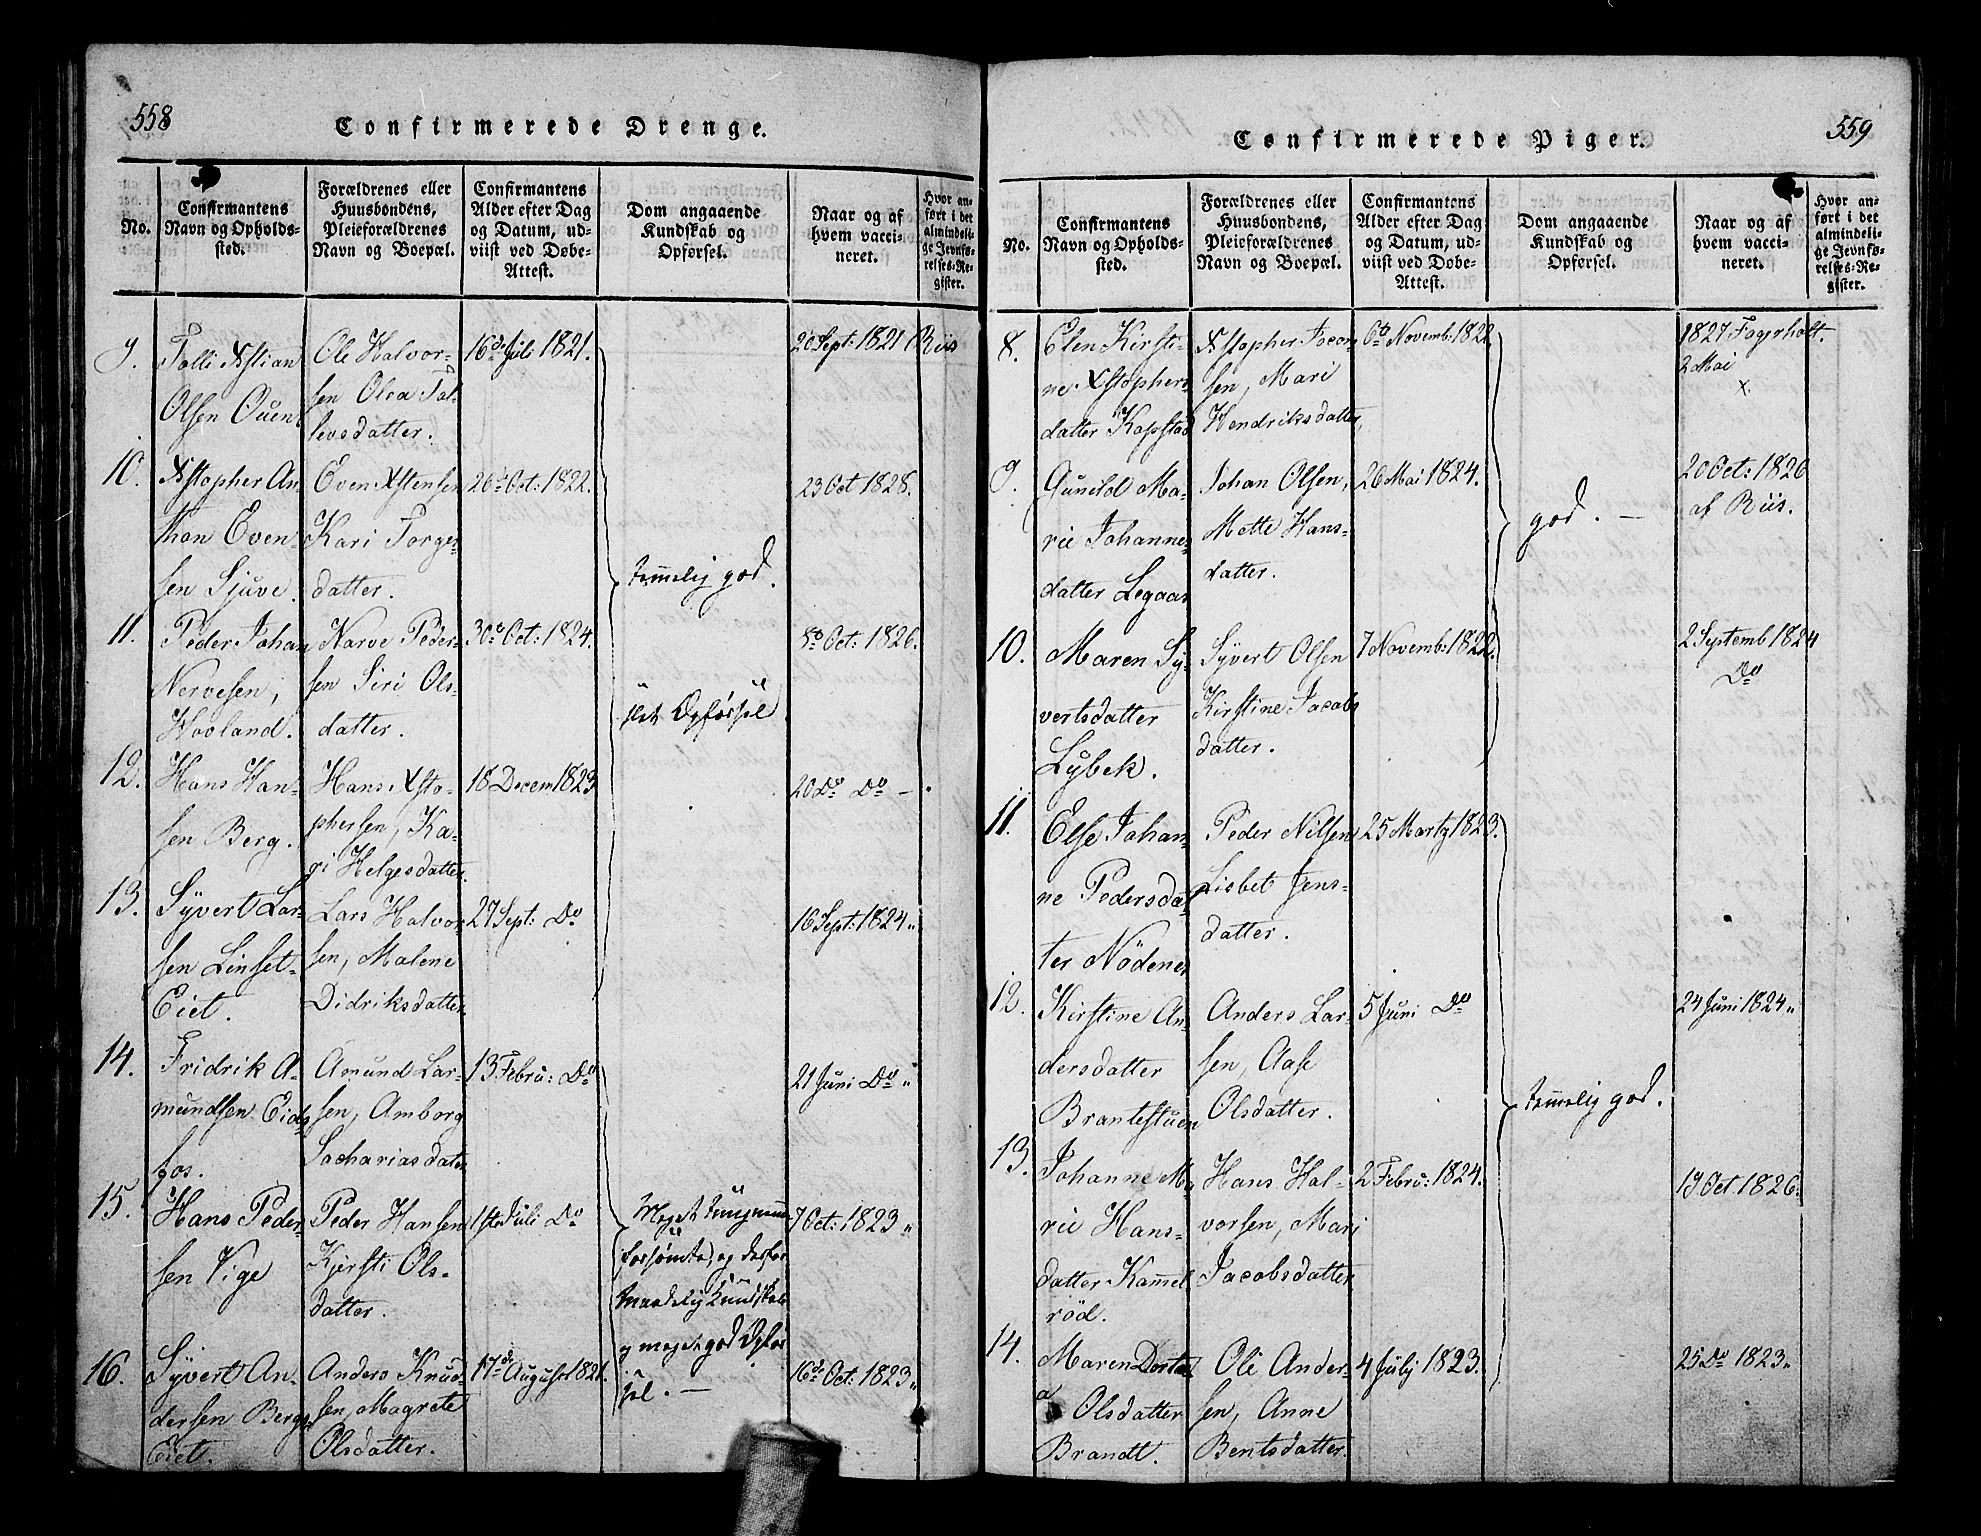 558
Confirmerede Drenge.
No.
Confirmantens
Navn og Opholds-
sted.
Forældrenes eller
Huusbondens,
Pleieforældrenes
Navn og Boepæl.
Confirmantens
Alder efter Dag
og Datum, ud-
viist ved Døbe-
Attest.
Dom angaaende
Kundskab og
Opførsel.
Naar og af
hvem vacci-
neret.
Hvor an-
ført i det
almindeli-
ge Jevnfø-
relses-Re-
gister.
9.
Tolli Xstian
Olsen
Ole Halvor-
sen Olea Tol-
levsdatter.
16de Juli 1821.
20 Sept: 1821 Riis
10.
Xstopher An-
thon Even-
sen Sjuve.
Even Xstensen
Kari Torges-
datter.
26de Oct: 1822.
23 Oct 1828.
temmelig god.
11.
Peder Johan
Nervesen,
Hovland.
Narve Peder-
sen Siri Ols-
datter.
30te Oct: 1824.
8de Oct: 1826.
slet Opførsel
12.
Hans Han-
sen Berg.
Hans Xsto-
phersen, Ka-
ri Helgesdatter.
18 Decem 1823
20 Do Do —
13.
Syvert Lar-
sen Linset-
Eiet.
Lars Halvor-
sen, Malene
Didriksdatter.
27 Sept: Do
16 Sept: 1824 "
14.
Fridrik A-
mundsen Eids-
fos.
Amund Lar-
sen, Amborg
Sachariasdatter
13 Febru: Do
21 Juni Do "
15.
Hans Peder-
sen Vige
Peder Hansen
Kjersti Ols-
datter.
1ste Juli Do
Meget
forsømte, og derfor
maadelig Kundskab
og meget god Opfør-
sel. —
7 Oct: 1823 "
16.
Syvert An-
dersen Bergs-
Eiet.
Anders Knud-
sen, Magrete
Olsdatter.
17de August 1821.
16de Oct: 1823 "
559
Confirmerede Piger.
No.
Confirmantens
Navn og Opholds-
sted.
Forældrenes eller
Huusbondens,
Pleieforældrenes
Navn og Boepæl.
Confirmantens
Alder efter Dag
og Datum, ud-
viist ved Døbe-
Attest.
Dom angaaende
Kundskab og
Opførsel.
Naar og af
hvem vacci-
neret.
Hvor an-
ført i det
almindeli-
ge Jevnfø-
relses-Re-
gister.
8.
Elen Kirsti-
ne Xstophers
datter Kopstad
Xstopher Jacob-
sen, Mari
Hendriksdatter,
6te Novemb: 1822
1827 Fagerholt.
2 Mai
x
9.
Gunild Ma-
rie Johannes
datter Legaar
Johan Olsen,
Mette Hans-
datter.
26 Mai 1824.
god. —
20 Oct: 1826
af Riis.
10.
Maren Sy-
vertsdatter
Lybek.
Syvert Olsen
Kirstine Jacobs
datter.
7 Novemb: 1822.
2 Septemb 1824
Do
11.
Else Johan-
ne Pedersdat
ter Nödenes
Peder Nilsen
Lisbet Jens-
datter.
25 Martz 1823.
12.
Kirstine An-
dersdatter
Brantestuen
Anders Lar-
sen, Aase
Olsdatter.
5 Juni Do
24 Juni 1824 "
temmelig god.
13.
Johanne Ma
rie Hans-
datter Kamel
röd.
Hans Hal-
vorsen, Mari
Jacobsdatter
2 Febru: 1824.
19 Oct. 1826.
14.
Maren
Olsdatter
Brandt.
Ole Ander-
sen, Anne
Bentsdatter.
4 July 1823.
25 Do 1823 "